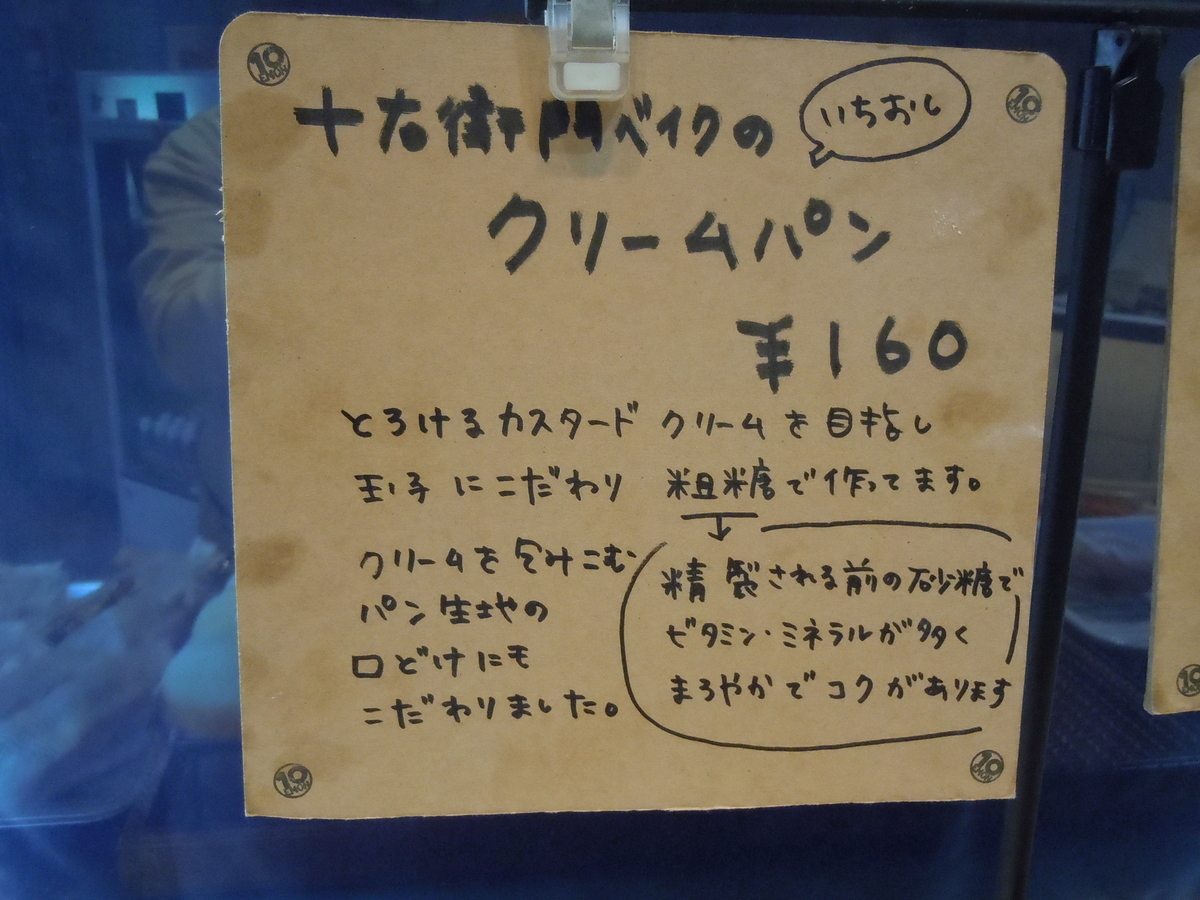 十右衛門ベイクの
いちおし
クリームパン
¥160
とろけるカスタード クリームを目指し
玉子にこだわり 粗糖で作ってます。
クリームを包みこむ
パン生地や の
口どけにも
こだわりました。
精製される前の砂糖で
ビタミン・ミネラルが多く
まろやかでコクがあります